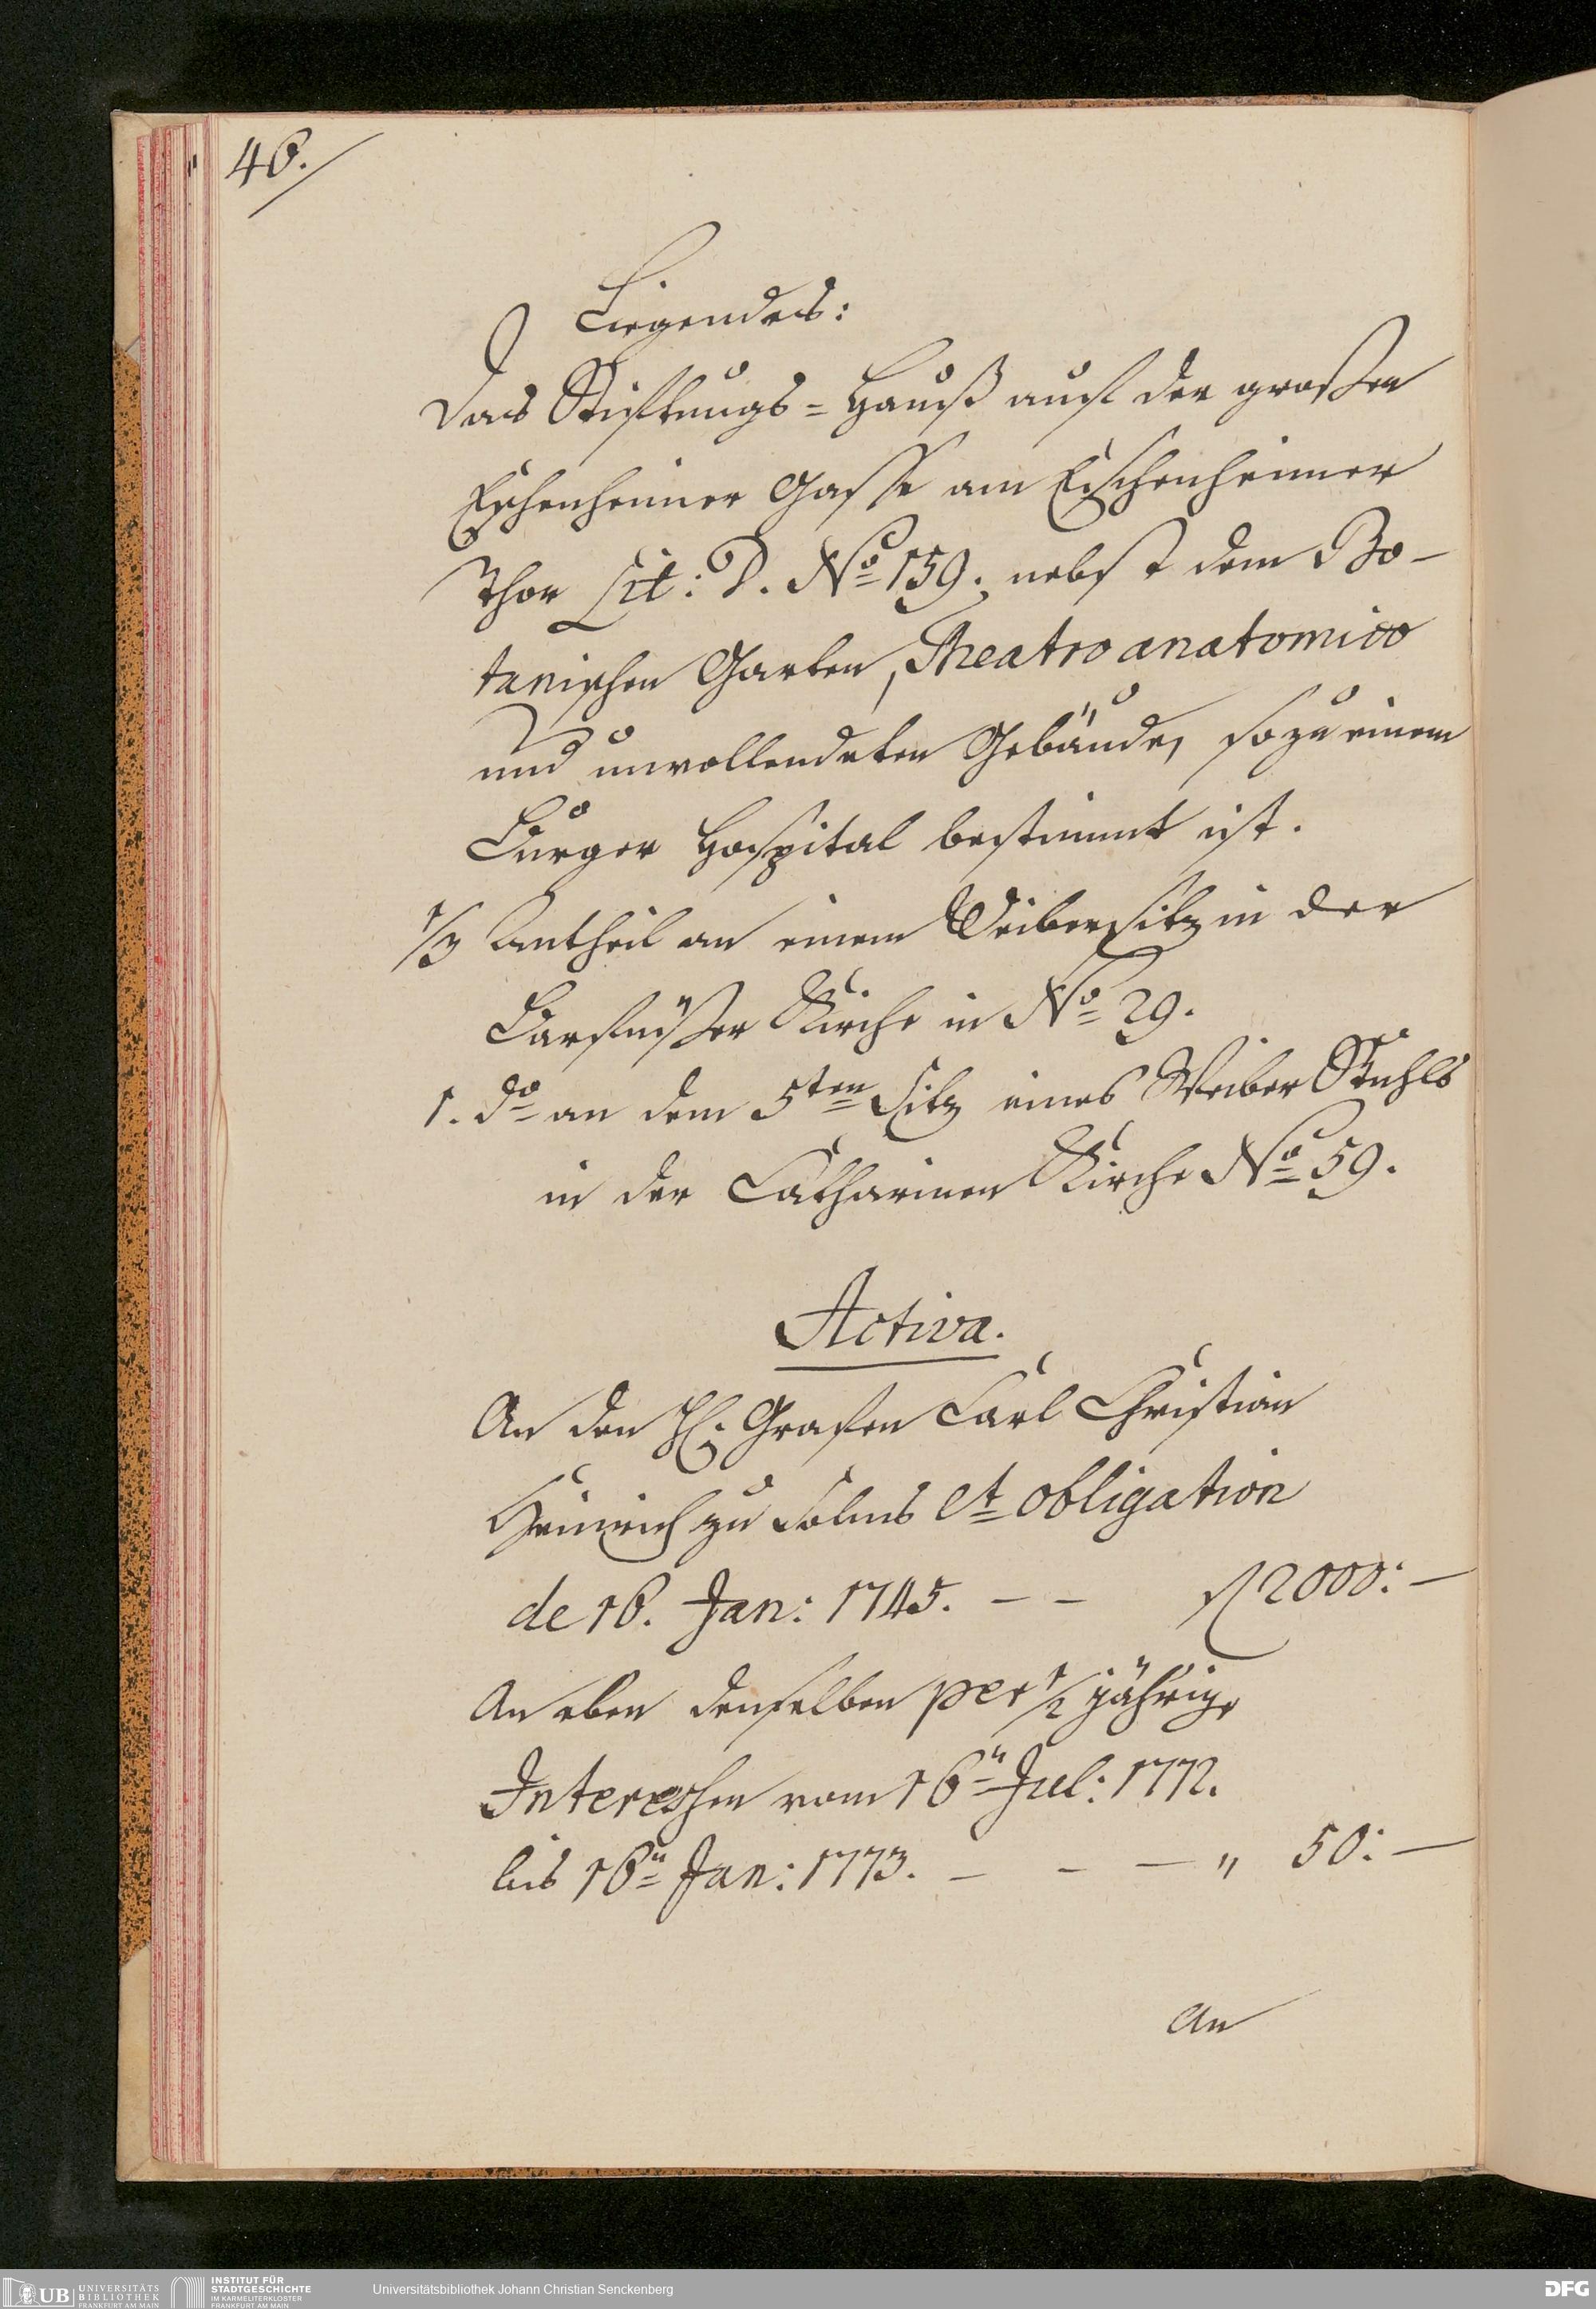 46.
Liegendes:
Das Stiftungs=Hauß auf der großen
Eschenheimer Gasse am Eschenheimer
Thor Lit: D. No 159. nebst dem Bo-
tanischen Garten, Theatro anatomico
und unvollendeten Gebäude, so zu einem
Burger Hospital bestimmt ist.
1/3 Antheil an einem Weibersitz in der
Barfüßer Kirche in No 29.
1. do an dem 5ten Sitz eines Weiber Stuhls
in der Catharinen Kirche No 59.
Activa.
An den H. Grafen Carl Christian
Heinrich zu Solms et obligation
de 16. Jan: 1745. - - fl 2000: -
An eben denselben per 1/2 jährige
Interessen vom 16n Jul: 1772.
bis 16n Jan: 1773. - - - " 50: -
An
UB UNIVERSITÄTS
BIBLIOTHEK
FRANKFURT AM MAIN
INSTITUT FÜR
STADTGESCHICHTE
IM KARMELITERKLOSTER
FRANKFURT AM MAIN
Universitätsbibliothek Johann Christian Senckenberg
DFG